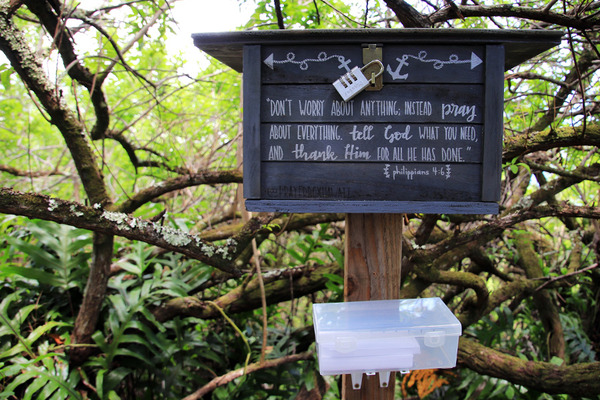 "DON'T WORRY ABOUT ANYTHING; INSTEAD pray
ABOUT EVERYTHING. tell God WHAT YOU NEED,
AND thank Him FOR ALL HE HAS DONE."
philippians 4:6